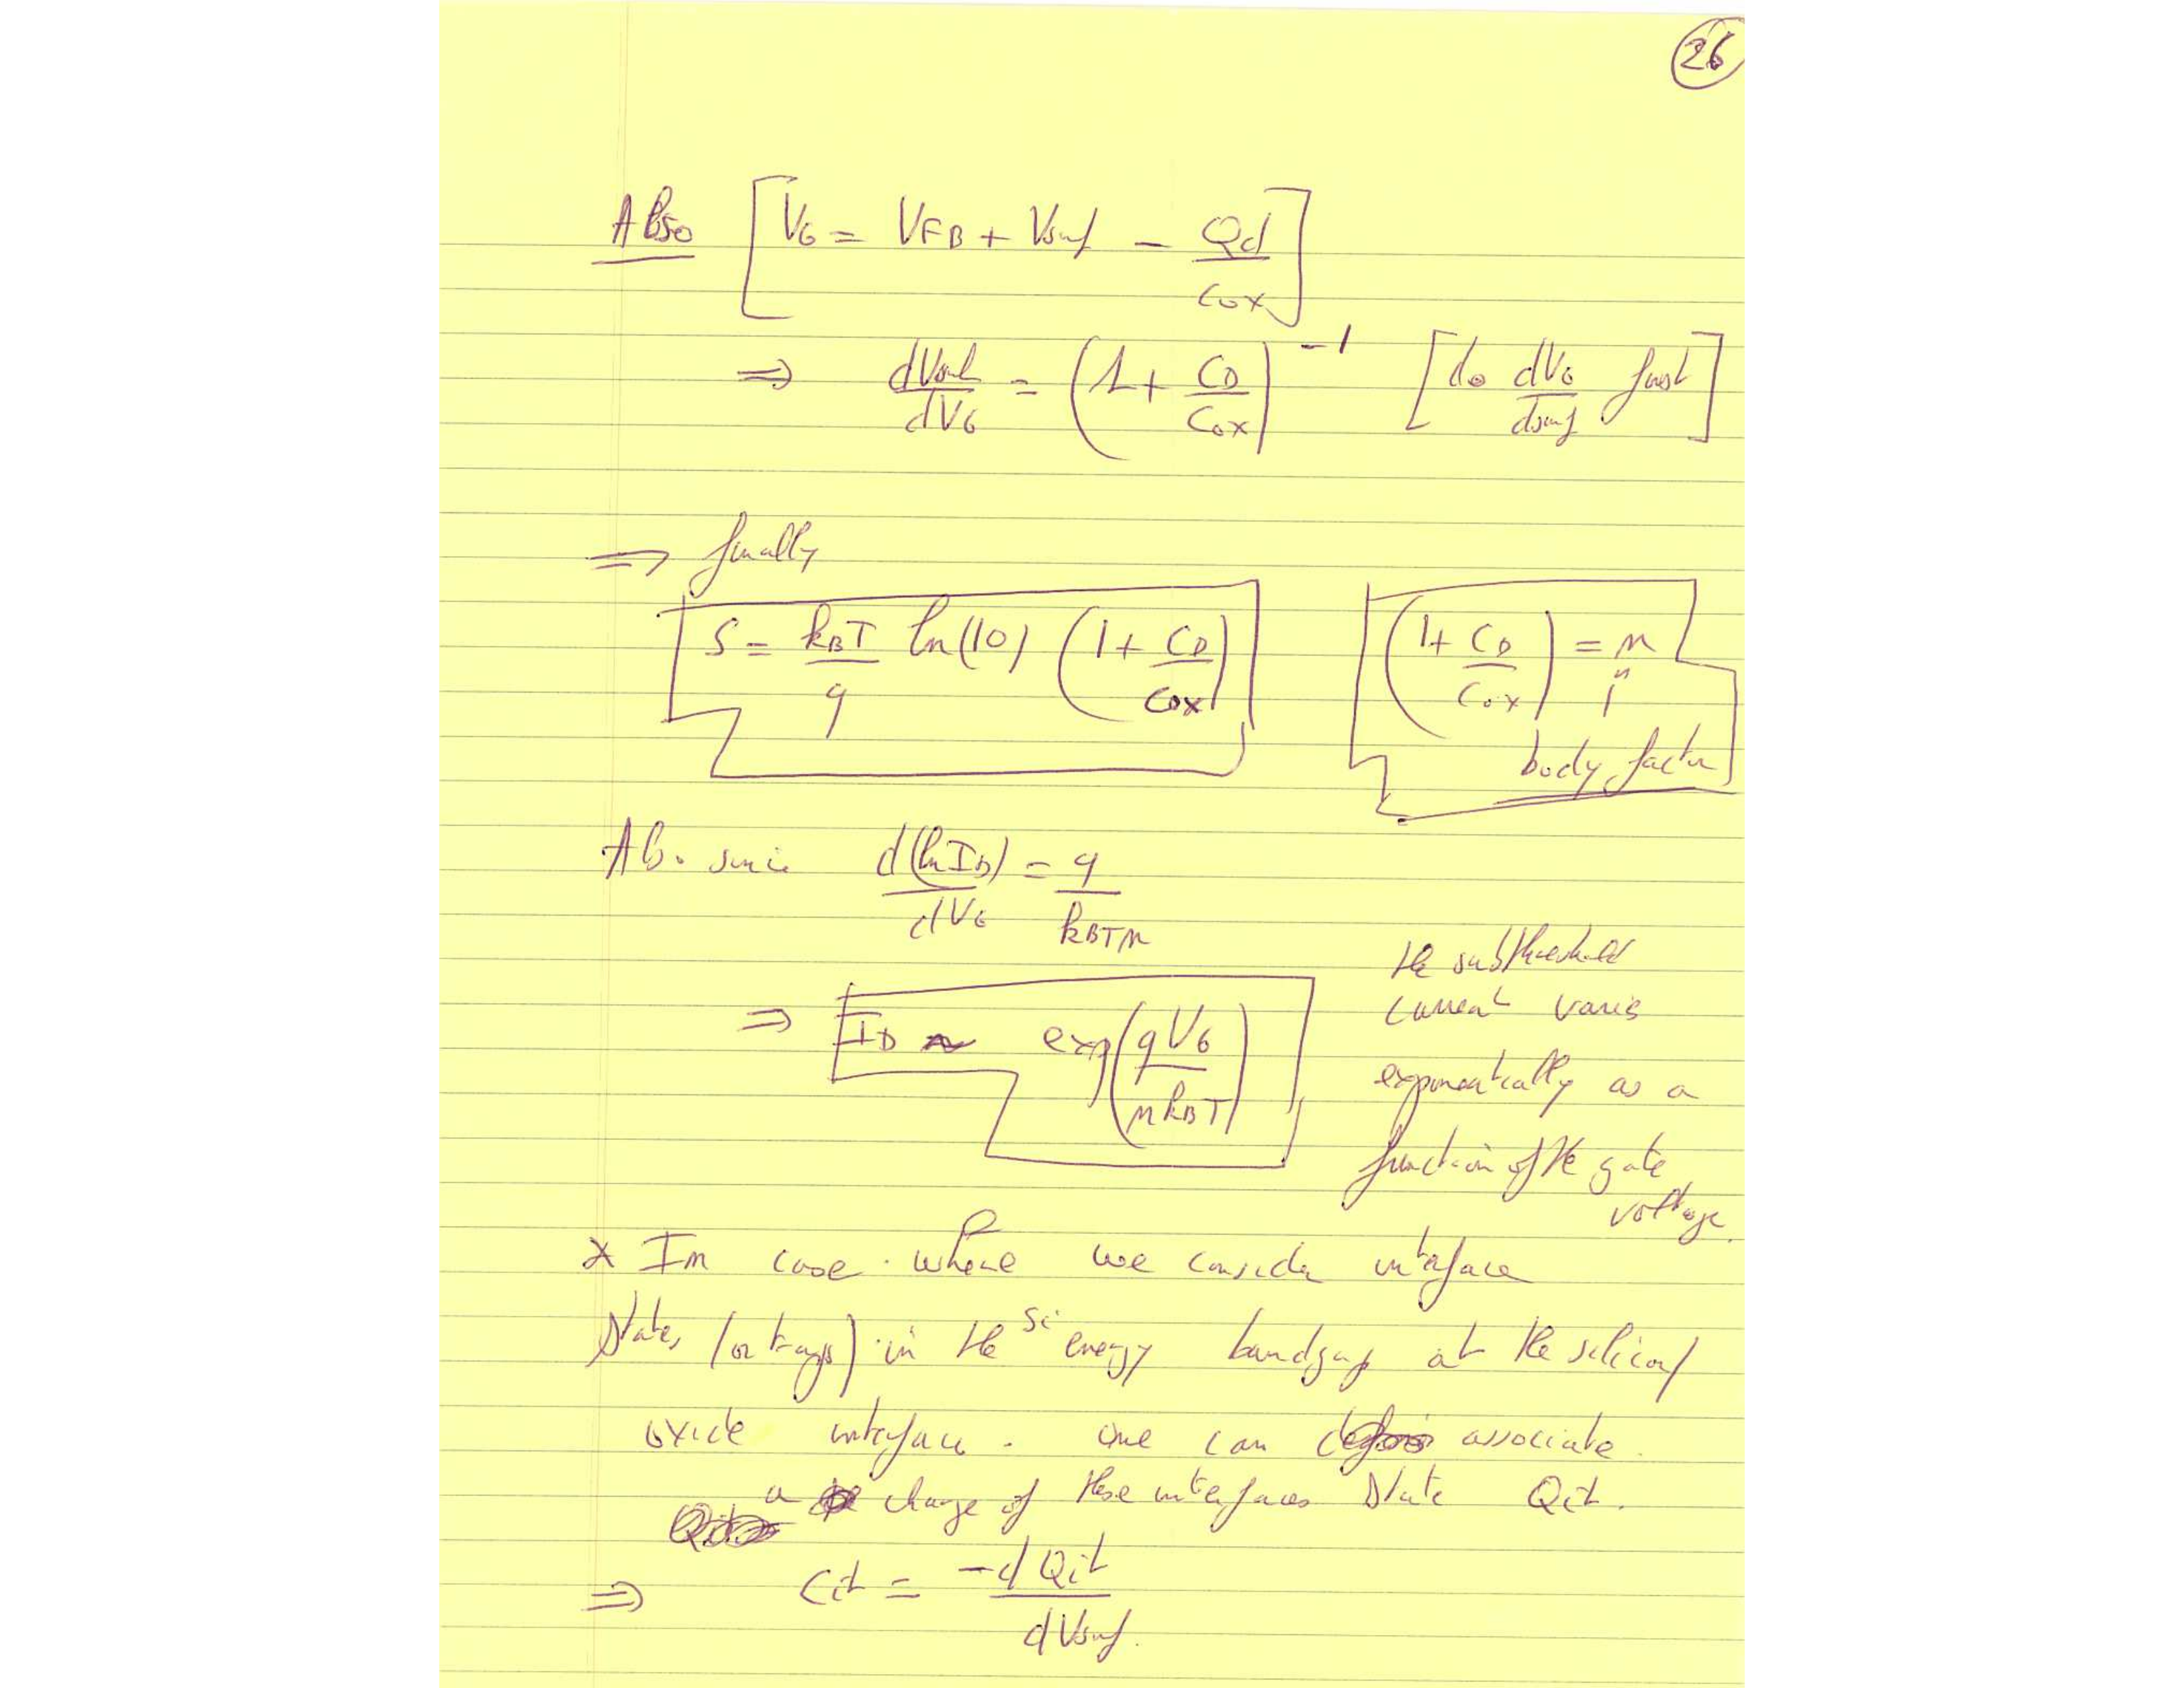 26
Also [V_G = V_FB + V_surf - Q_d / C_ox]
⇒ dV_surf / dV_G = (1 + C_D / C_ox)^-1 [do dV_G / d_surf first]
⇒ finally
S = k_BT / q ln(10) (1 + C_D / C_ox) (1 + C_D / C_ox) = n
body factor
Also since d(ln I_D) / dV_G = q / k_BTn
the subthreshold
current varies
⇒ I_D ~ exp(qV_G / nk_BT)
exponentially as a
function of the gate
voltage.
* In case where we consider interface
states (or traps) in the Si energy bandgap at the silicon/
oxide interface. One can associate
a charge of these interfaces state Qit.
⇒ Cit = -dQit / dV_surf.